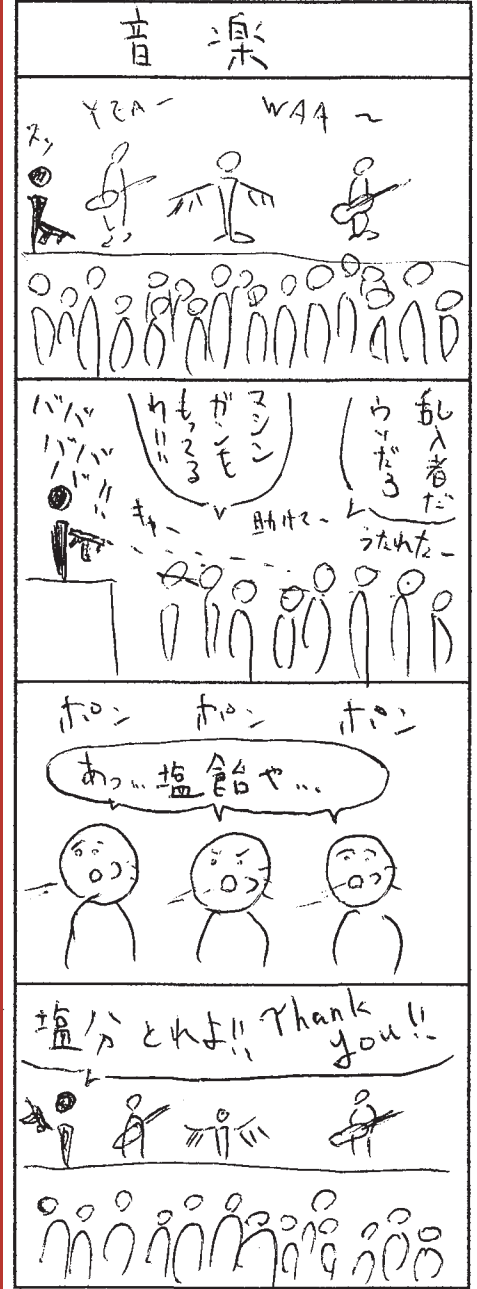 音楽
YEA～
WAA～
スッ
乱入者だ
ウソだろ
マシン
ガンを
もってる
わ!!!
ババババババ!!
キャー
助けて～
うたれたー
ポン
ポン
ポン
あっ...塩飴や...
塩分とれよ!! Thank
you!!